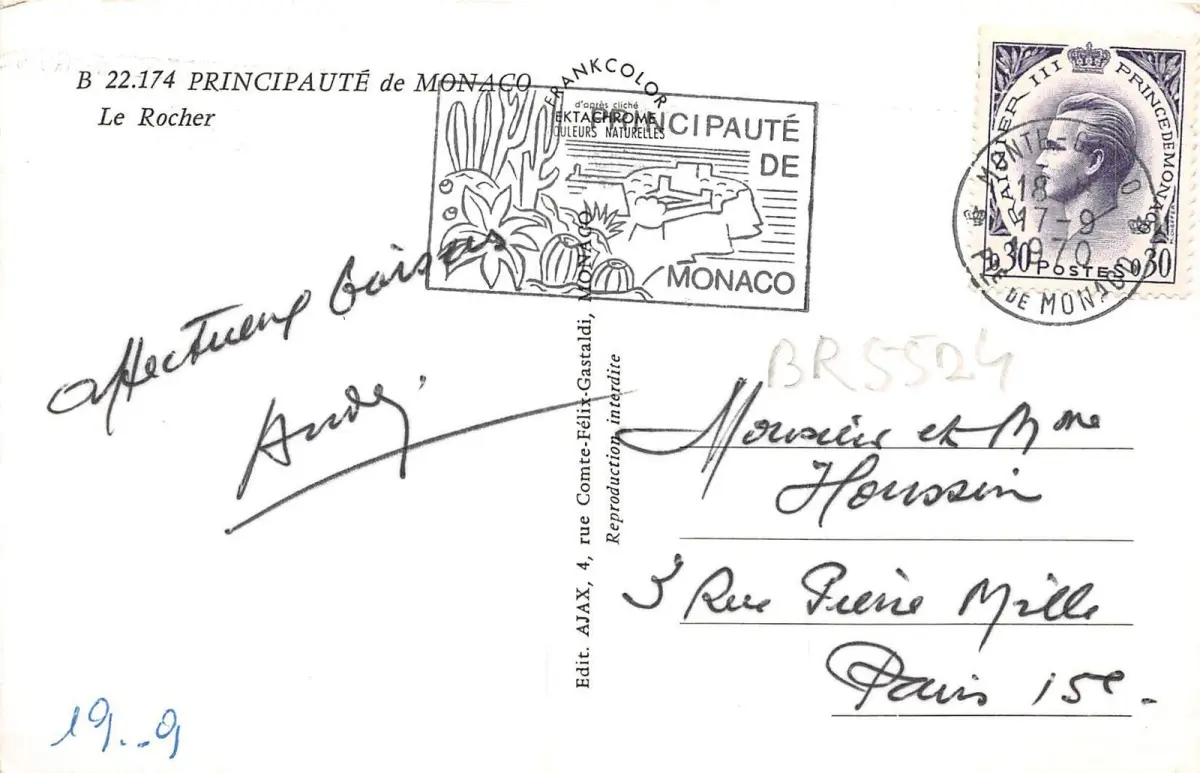 B 22.174 PRINCIPAUTÉ de MONACO
Le Rocher
FRANKCOLOR
d'après cliché
EKTACHROME
COULEURS NATURELLES
PRINCIPAUTÉ
DE
MONACO
RAINIER III PRINCE DE MONACO
0,30 POSTES 0,30
MONTE-CARLO
18
17-9
1970
Pté DE MONACO
affectueux baisers
André
Edit. AJAX, 4, rue Comte-Félix-Gastaldi, MONACO
Reproduction interdite
BR5524
Monsieur et Mme
Houssin
3 Rue Pierre Mille
Paris 15e.
19..9